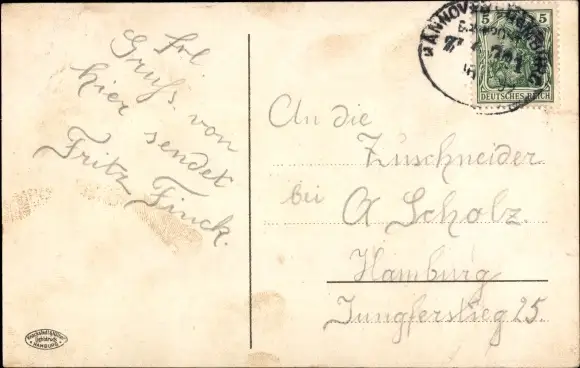 frl.
Gruß. von
hier sendet
Fritz Finck.
HANNOVER
5 5
DEUTSCHES REICH
An die
Zuschneider
bei A Scholz.
Hamburg
Jungferstieg 25.
HAMBURG